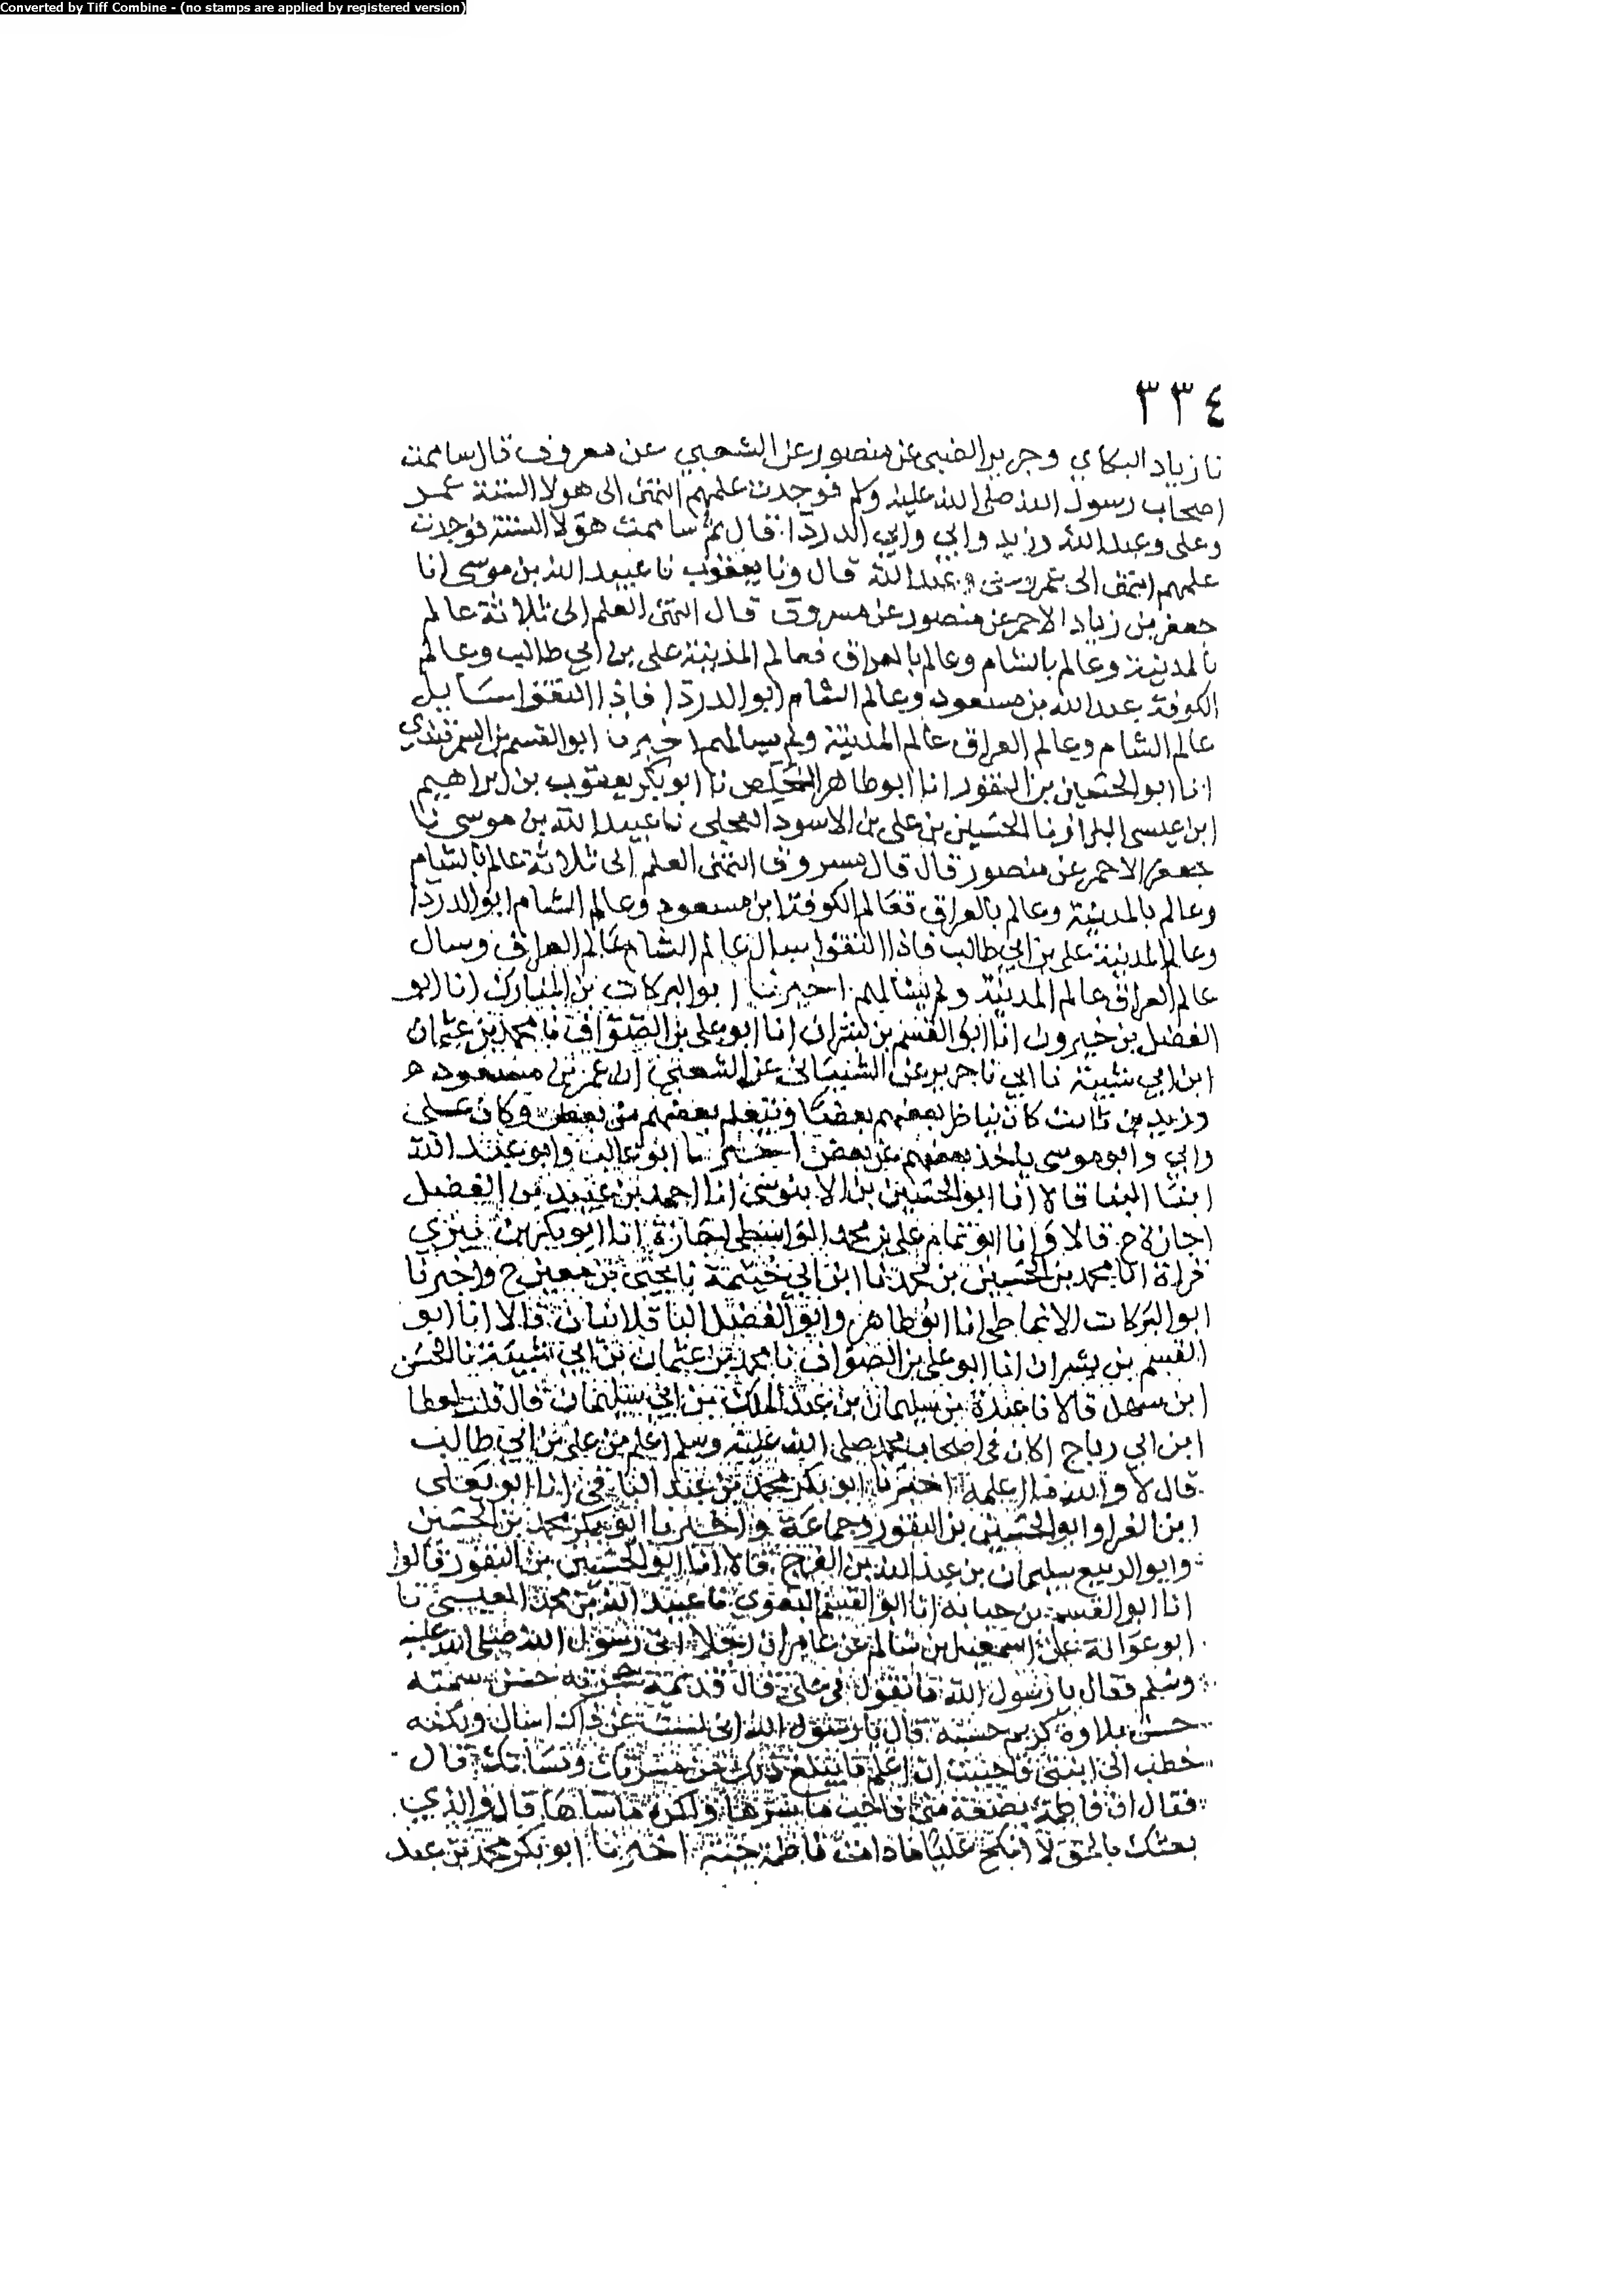 Converted by Tiff Combine - (no stamps are applied by registered version)
٣٣٤
نا زياد البكاي وجرير الضبي عن منصور عن الشعبي عن معروف قال ساممت
اصحاب رسول الله صلى الله عليه وسلم فوجدت علمهم انتهى الى هولا الستة عمر
وعلى وعبد الله وزيد وابي وابي الدردا قال ثم ساممت هولا الستة فوجدت
علمهم انتهى الى عبد الله قال ونا يعقوب نا عبيد الله بن موسى انا
جعفر بن زياد الاحمر عن منصور عن مسروق قال انتهى العلم الى ثلاثة عالم
بالمدينة وعالم بالشام وعالم بالعراق فعالم المدينة على بن ابي طالب وعالم
الكوفة عبد الله بن مسعود وعالم الشام ابو الدردا فاذا التقوا سايل
عالم الشام وعالم العراق عالم المدينة ولم يسالهم اخبرنا ابو القسم بن السمرقندي
انا ابو الحسين بن النقور انا ابو طاهر المخلص نا ابو بكر يعقوب بن ابراهيم
ابن عيسى البزاز نا الحسين بن على بن الاسود العجلى نا عبيد الله بن موسى نا
جعفر الاحمر عن منصور قال قال مسروق انتهى العلم الى ثلاثة عالم بالشام
وعالم بالمدينة وعالم بالعراق فعالم الكوفة ابن مسعود وعالم الشام ابو الدردا
وعالم المدينة على بن ابي طالب فاذا التقوا سال عالم الشام عالم العراق وسال
عالم العراق عالم المدينة ولم يسالهم اخبرنا ابو البركات بن المبارك انا ابو
الفضل بن خيرون انا ابو القسم بن بشران انا ابو على بن الصواف نا محمد بن عثمان
ابن ابي شيبة نا ابي نا جرير عن الشيباني عن الشعبي ان عمر بن مسعود
وزيد بن ثابت كان يناظر بعضهم بعضا ويتعلم بعضهم من بعض وكان على
وابي وابو موسى ياخذ بعضهم عن بعض اخبرنا ابو غالب وابو عبد الله
ابنا البنا قالا انا ابو الحسين بن الابنوسى انا احمد بن عبيد بن الفضل
اجازة ح قالا وانا ابو تمام على بن محمد الواسطى اجازة انا ابو بكر بن بيري
قراة انا محمد بن الحسين بن محمد نا ابن ابي خيثمة نا يحيى بن معين ح واخبرنا
ابو البركات الانماطى انا ابو طاهر وابو الفضل الباقلانيان قالا انا ابو
القسم بن بشران انا ابو على بن الصواف نا محمد بن عثمان بن ابي شيبة نا الحسن
ابن سهل قالا نا عبدة بن سليمان بن عبد الملك بن ابي سليمان قال قلت لعطا
ابن ابي رباح اكان فى اصحاب محمد صلى الله عليه وسلم اعلم من على بن ابي طالب
قال لا والله ما اعلمه اخبرنا ابو بكر محمد بن عبد الباقى انا ابو يعلى
ابن الفرا وابو الحسين بن النقور وجماعة واخبرنا ابو بكر محمد بن الحسين
وابو الربيع سليمان بن عبد الله بن الفرج قالا انا ابو الحسين بن النقور قالوا
انا ابو القسم بن حبابه انا ابو القسم البغوى نا عبيد الله بن محمد العيشى نا
ابو عوانة عن اسمعيل بن سالم عن عامر ان رجلا اتى رسول الله صلى الله عليه
وسلم فقال يا رسول الله ما تقول فى على قال قديمة هجرته حسن سمته
حسن بلاوه كريم حسبه قال يا رسول الله انى لست عن ذاك اسال ولكنه
خطب الى ابنتى فاحببت ان اعلم ما يبلغ ذلك من مسرتك ومساتك قال
فقال ان فاطمة بضعة منى فاحب ما سرها واكره ما ساها قال والذي
بعثك بالحق لا انكح عليا ما دامت فاطمة حية اخبرنا ابو بكر محمد بن عبد